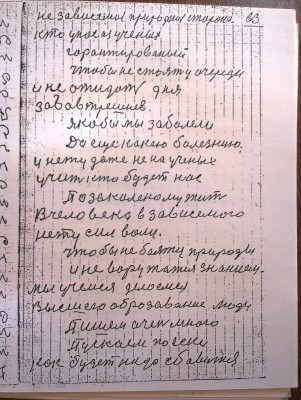 не зависемой природный стороны 63
кто у нас из ученых
гарантированый
чтобы не стоят у очереди
и не ожидат дня
завтрешнев.
якобы мы заболели
Да с ускакаю болезнию.
и нету даже не научных
учит кто будет нас
По законому жит
В человека в зависемого
нету сил воли.
чтобы не баятц природы
и не воружатця знанием
мы учемся делаемся
Высшего оброзавание люди
Пишем очен много
Пускаем песни
как будет надо сбавитця